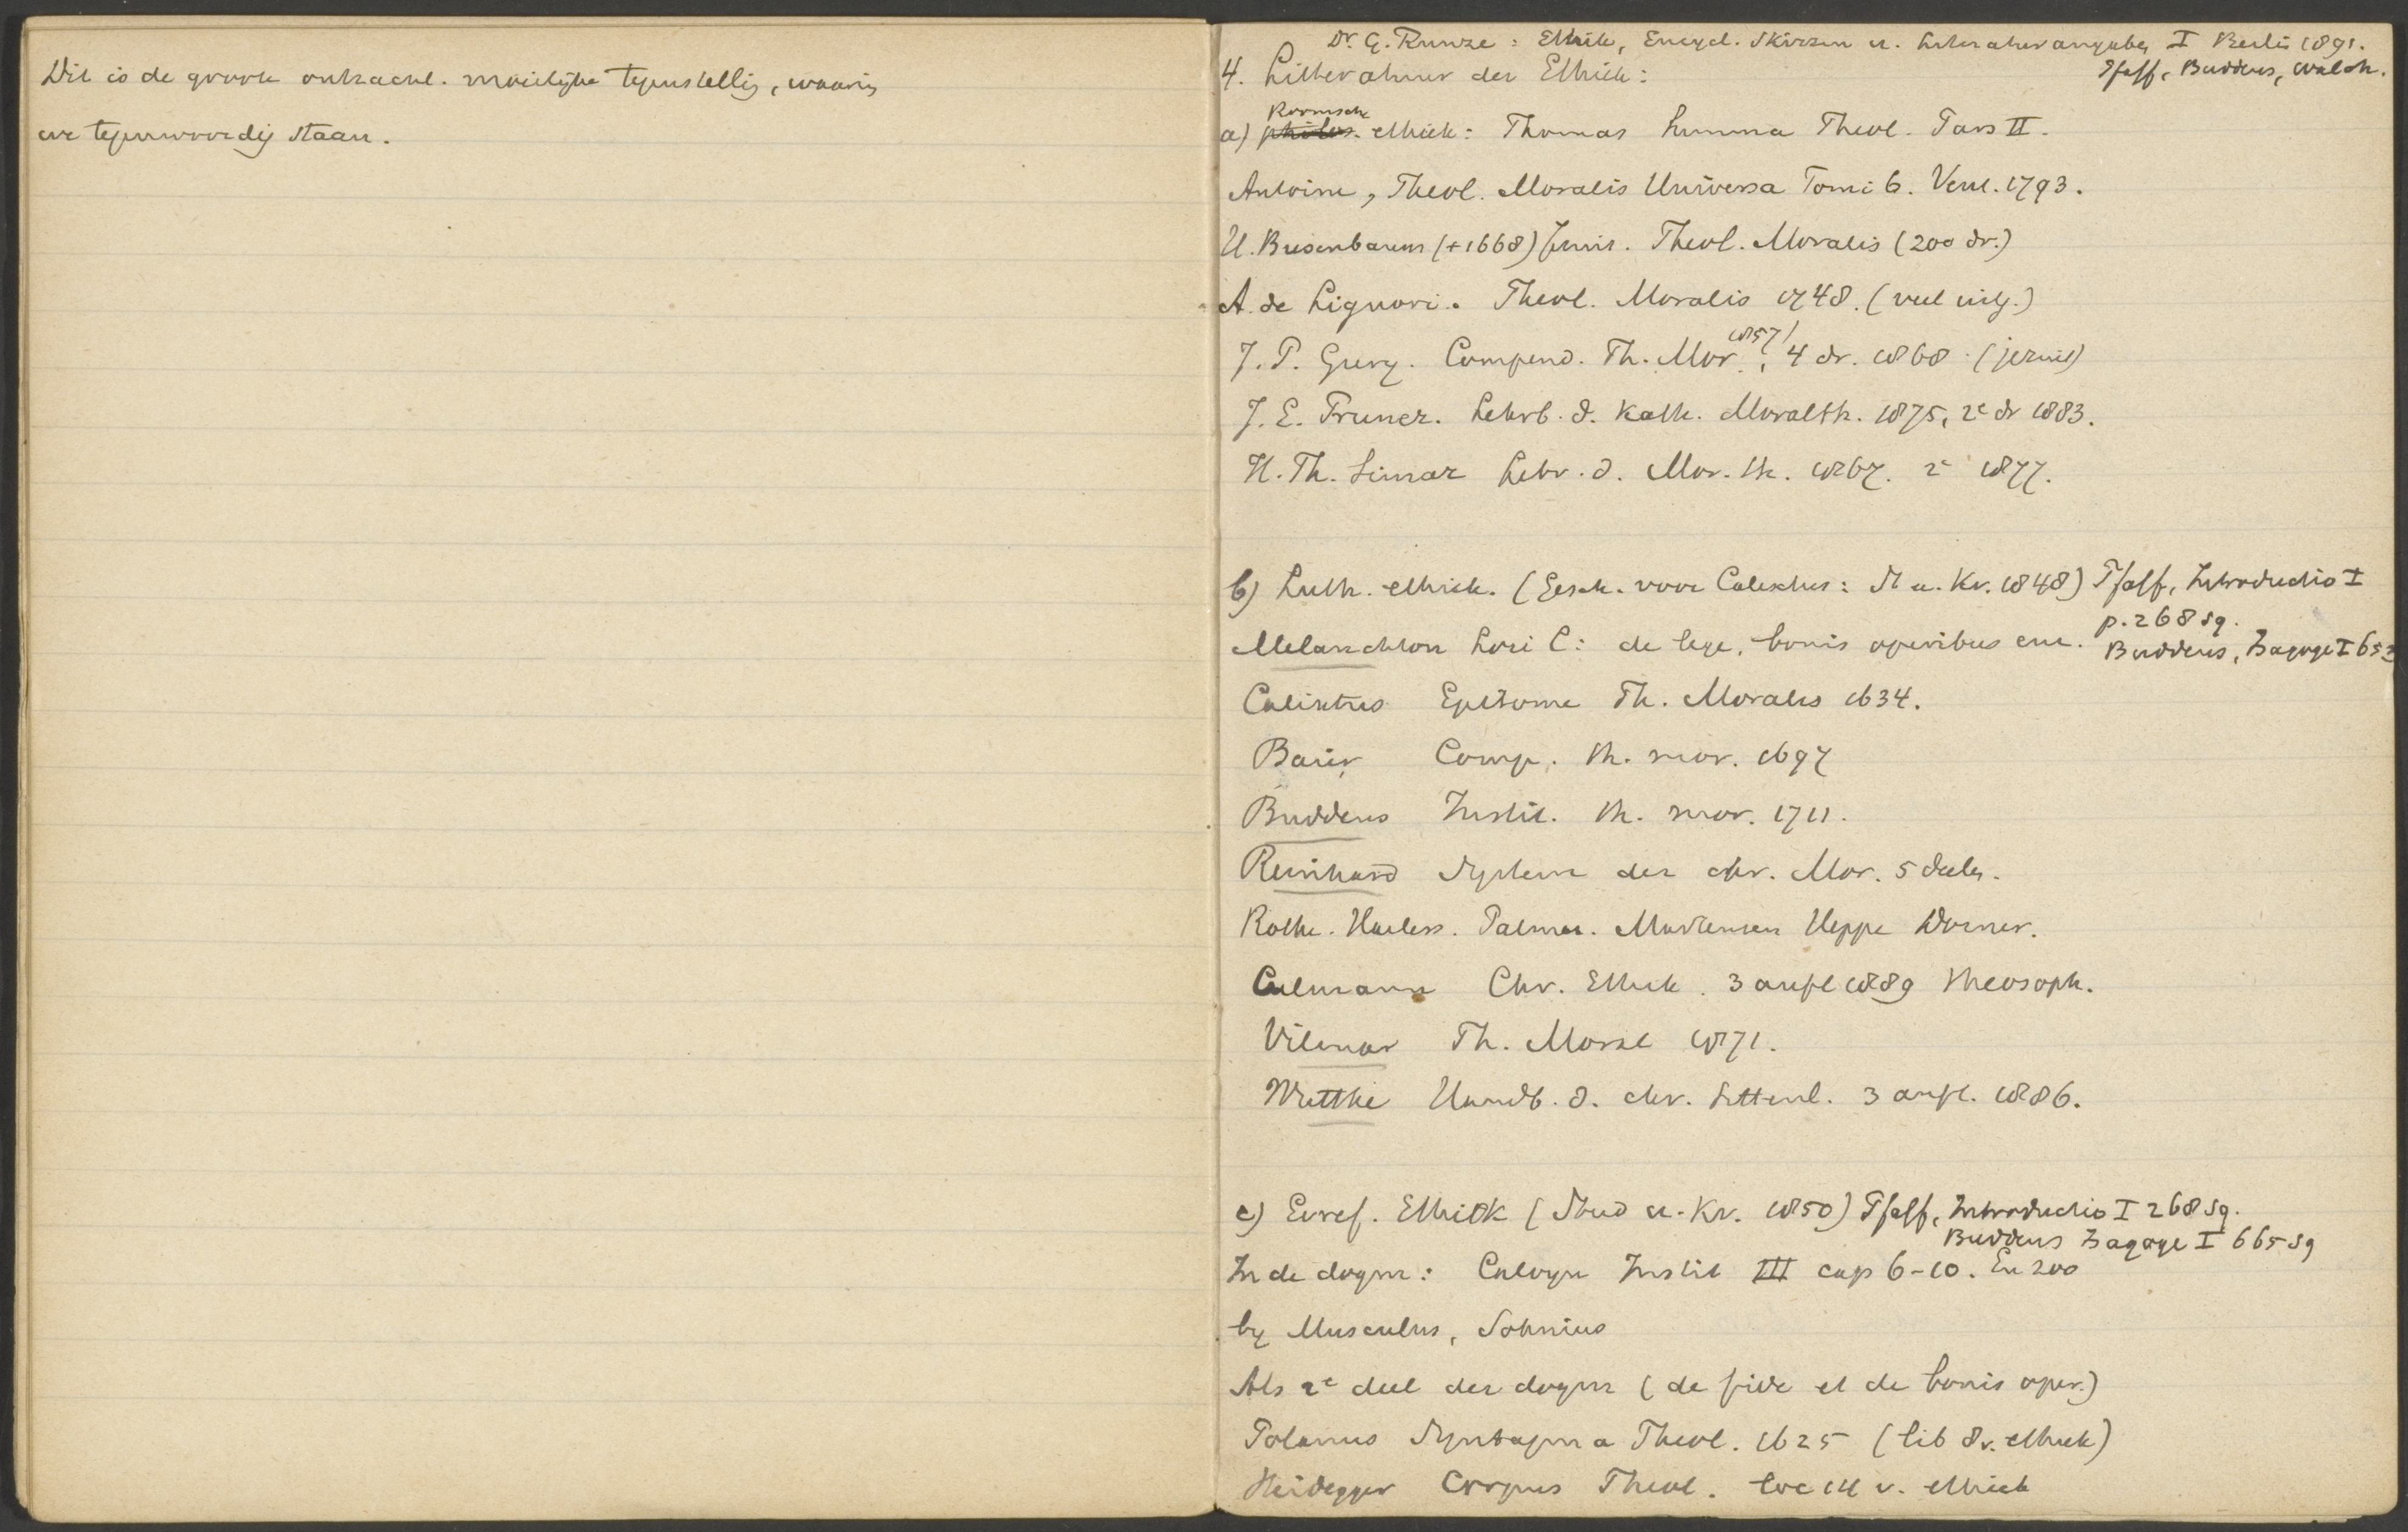 Dit is de groote ontzachl. moeilijke tegenstellig, waarin
we tegenwoordig staan.
Dr. G. Runze: Ethik, Encycl. Skizzen u. Literaturangaben I Berlin 1891.
Pfaff, Buddeus, Walch.
4. Litteratuur der Ethiek:
Roomsche
a) philos. ethiek: Thomas Summa Theol. Pars II.
Antoine, Theol. Moralis Universa Tomi 6. Venet. 1793.
H. Busenbaum (+1668) Jezuit. Theol. Moralis (200 dr.)
A. de Liguori. Theol. Moralis 1748. (veel uitg.)
1857
J. P. Gury. Compend. Th. Mor., 4 dr. 1868. (jezuit)
J. E. Pruner. Lehrb. d. Kath. Moralth. 1875, 2e dr 1883.
H. Th. Simar Lehr. d. Mor. th. 1867. 2e 1877.
b) Luth. ethiek. (Gesch. voor Calixtus: St u. Kr. 1848) Pfaff, Introductio I
p. 268 sq.
Buddeus, Isagoge I 653
Melanchton Loci C: de lege, bonis operibus enz.
Calixtus Epitome Th. Moralis 1634.
Baier Comp. th. mor. 1697
Buddeus Instit. th. mor. 1711.
Reinhard System der chr. Mor. 5 deelen.
Rothe. Harless. Palmer. Martensen Heppe Dorner.
Culmann Chr. Ethik. 3 aufl 1889 theosoph.
Vilmar Th. Moral 1871.
Wuttke Handb. d. chr. Sittenl. 3 aufl. 1886.
c) Geref. Ethiek (Stud u. Kr. 1850) Pfaff, Introductio I 268 sq.
Buddeus Isagoge I 665 sq
In de dogm: Calvijn Instit III cap 6-10. En zoo
by Musculus, Sohnius
Als 2e deel der dogm (de fide et de bonis oper.)
Polanus Syntagma Theol. 1625 (lib 8 v. ethiek)
Heidegger Corpus Theol. loc 14 v. ethiek